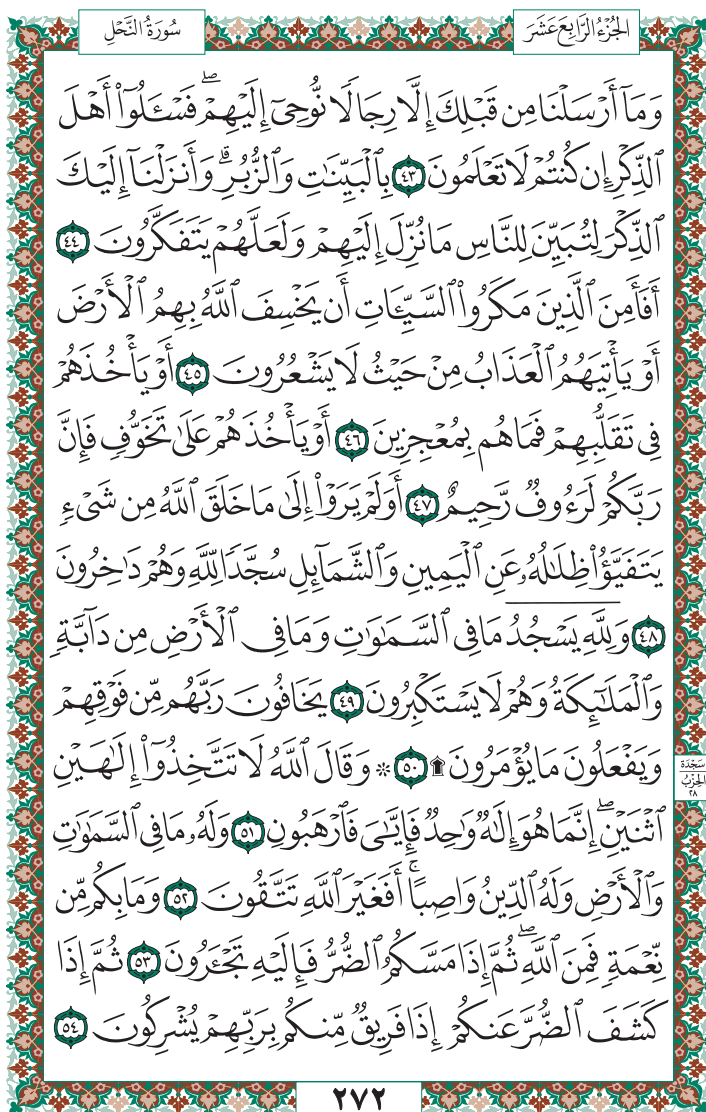 الجُزْءُ الرَّابِعَ عَشَرَ
سُورَةُ النَّحْلِ
وَمَآ أَرْسَلْنَا مِن قَبْلِكَ إِلَّا رِجَالًا نُّوحِىٓ إِلَيْهِمْ ۖ فَسْـَٔلُوٓا۟ أَهْلَ
ٱلذِّكْرِ إِن كُنتُمْ لَا تَعْلَمُونَ ٤٣ بِٱلْبَيِّنَـٰتِ وَٱلزُّبُرِ ۗ وَأَنزَلْنَآ إِلَيْكَ
ٱلذِّكْرَ لِتُبَيِّنَ لِلنَّاسِ مَا نُزِّلَ إِلَيْهِمْ وَلَعَلَّهُمْ يَتَفَكَّرُونَ ٤٤
أَفَأَمِنَ ٱلَّذِينَ مَكَرُوا۟ ٱلسَّيِّـَٔاتِ أَن يَخْسِفَ ٱللَّهُ بِهِمُ ٱلْأَرْضَ
أَوْ يَأْتِيَهُمُ ٱلْعَذَابُ مِنْ حَيْثُ لَا يَشْعُرُونَ ٤٥ أَوْ يَأْخُذَهُمْ
فِى تَقَلُّبِهِمْ فَمَا هُم بِمُعْجِزِينَ ٤٦ أَوْ يَأْخُذَهُمْ عَلَىٰ تَخَوُّفٍ فَإِنَّ
رَبَّكُمْ لَرَءُوفٌ رَّحِيمٌ ٤٧ أَوَلَمْ يَرَوْا۟ إِلَىٰ مَا خَلَقَ ٱللَّهُ مِن شَىْءٍ
يَتَفَيَّؤُا۟ ظِلَـٰلُهُۥ عَنِ ٱلْيَمِينِ وَٱلشَّمَآئِلِ سُجَّدًا لِّلَّهِ وَهُمْ دَٰخِرُونَ
٤٨ وَلِلَّهِ يَسْجُدُ مَا فِى ٱلسَّمَـٰوَٰتِ وَمَا فِى ٱلْأَرْضِ مِن دَآبَّةٍ
وَٱلْمَلَـٰٓئِكَةُ وَهُمْ لَا يَسْتَكْبِرُونَ ٤٩ يَخَافُونَ رَبَّهُم مِّن فَوْقِهِمْ
وَيَفْعَلُونَ مَا يُؤْمَرُونَ ۩ ٥٠ ۞ وَقَالَ ٱللَّهُ لَا تَتَّخِذُوٓا۟ إِلَـٰهَيْنِ
سَجْدَة
الحِزْبُ
٢٨
ٱثْنَيْنِ ۖ إِنَّمَا هُوَ إِلَـٰهٌ وَٰحِدٌ فَإِيَّـٰىَ فَٱرْهَبُونِ ٥١ وَلَهُۥ مَا فِى ٱلسَّمَـٰوَٰتِ
وَٱلْأَرْضِ وَلَهُ ٱلدِّينُ وَاصِبًا ۚ أَفَغَيْرَ ٱللَّهِ تَتَّقُونَ ٥٢ وَمَا بِكُم مِّن
نِّعْمَةٍ فَمِنَ ٱللَّهِ ۖ ثُمَّ إِذَا مَسَّكُمُ ٱلضُّرُّ فَإِلَيْهِ تَجْـَٔرُونَ ٥٣ ثُمَّ إِذَا
كَشَفَ ٱلضُّرَّ عَنكُمْ إِذَا فَرِيقٌ مِّنكُم بِرَبِّهِمْ يُشْرِكُونَ ٥٤
٢٧٢